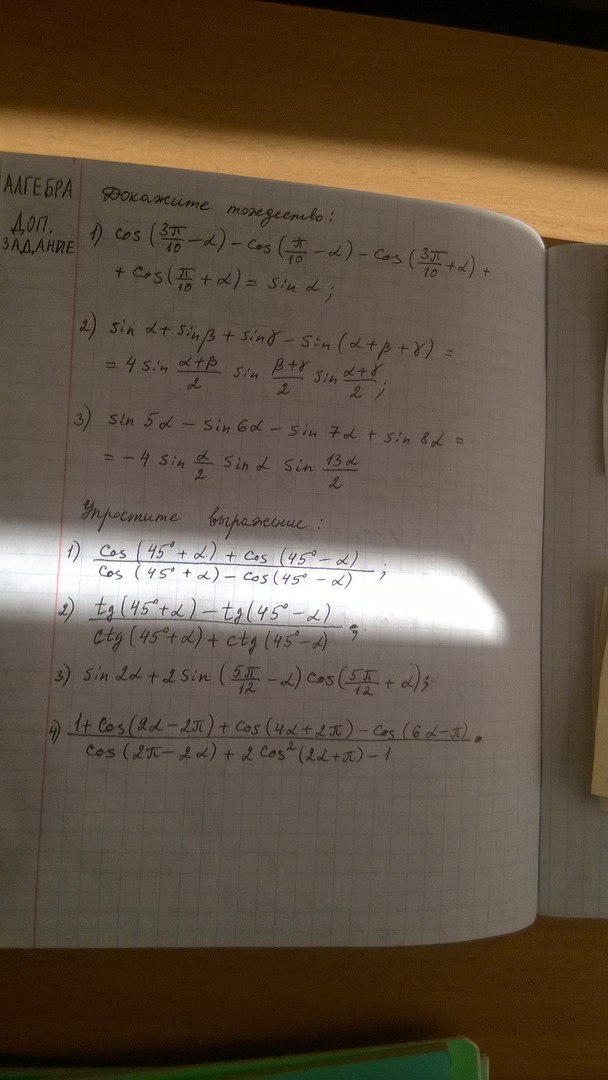 АЛГЕБРА
ДОП.
ЗАДАНИЕ
Докажите тождество:
1) cos (3π/10 - α) - cos (π/10 - α) - cos (3π/10 + α) +
+ cos (π/10 + α) = sin α ;
2) sin α + sin β + sin γ - sin (α + β + γ) =
= 4 sin (α+β)/2 sin (β+γ)/2 sin (α+γ)/2 ;
3) sin 5α - sin 6α - sin 7α + sin 8α =
= - 4 sin α/2 sin α sin 13α/2
Упростите выражение :
1) (cos (45° + α) + cos (45° - α))/(cos (45° + α) - cos (45° - α)) ;
2) (tg (45° + α) - tg (45° - α))/(ctg (45° + α) + ctg (45° - α)) ;
3) sin 2α + 2 sin (5π/12 - α) cos (5π/12 + α) ;
4) (1 + cos (2α - 2π) + cos (4α + 2π) - cos (6α - π))/(cos (2π - 2α) + 2 cos² (2α + π) - 1) .